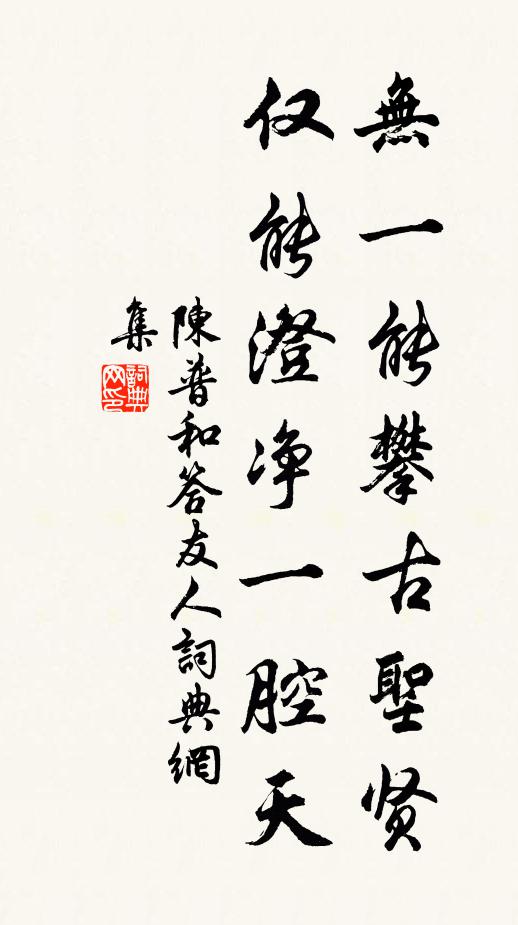 無一能攀古聖贤
仅能澄净一腔天
陳普和答友人詞典網
集
詞典
网印